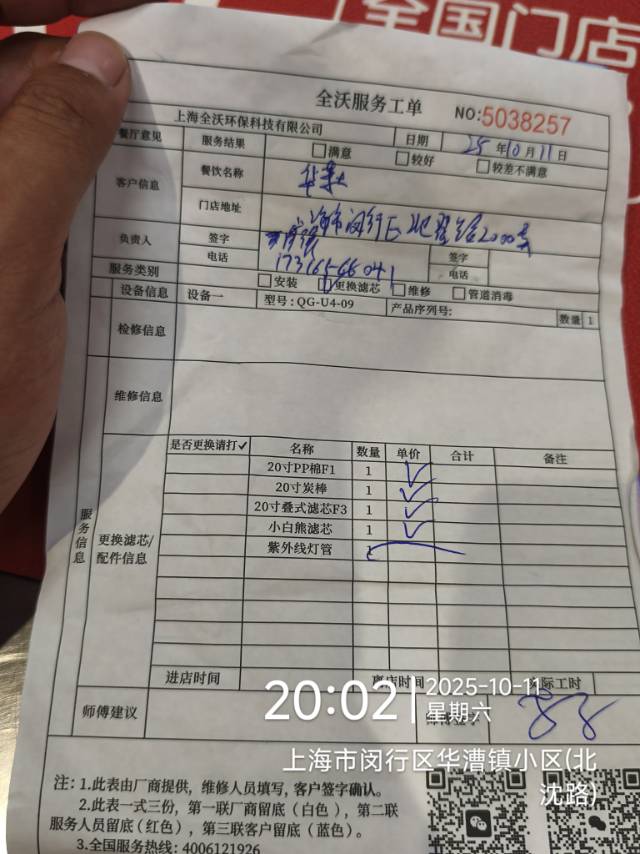 全国门店
全沃服务工单 NO:5038257
上海全沃环保科技有限公司
日期 25年10月11日
餐厅意见 服务结果 □满意 □较好 □较差不满意
客户信息 餐饮名称 华莱士
门店地址 上海市闵行区北翟路2000号
负责人 签字 签字
电话 17316566041 电话
服务类别 □安装 □更换滤芯 □维修 □管道消毒
设备信息 设备一 型号:QG-U4-09 产品序列号: 数量 1
检修信息
维修信息
服务信息
更换滤芯/配件信息
是否更换请打✓ 名称 数量 单价 合计 备注
20寸PP棉F1 1 ✓
20寸炭棒 1 ✓
20寸叠式滤芯F3 1 ✓
小白熊滤芯 1 ✓
紫外线灯管
进店时间 离店时间 实际工时
师傅建议 师傅签字
20:02 2025-10-11
星期六
上海市闵行区华漕镇小区(北
沈路)
注:1.此表由厂商提供,维修人员填写,客户签字确认。
2.此表一式三份,第一联厂商留底(白色),第二联
服务人员留底(红色),第三联客户留底(蓝色)。
3.全国服务热线:4006121926